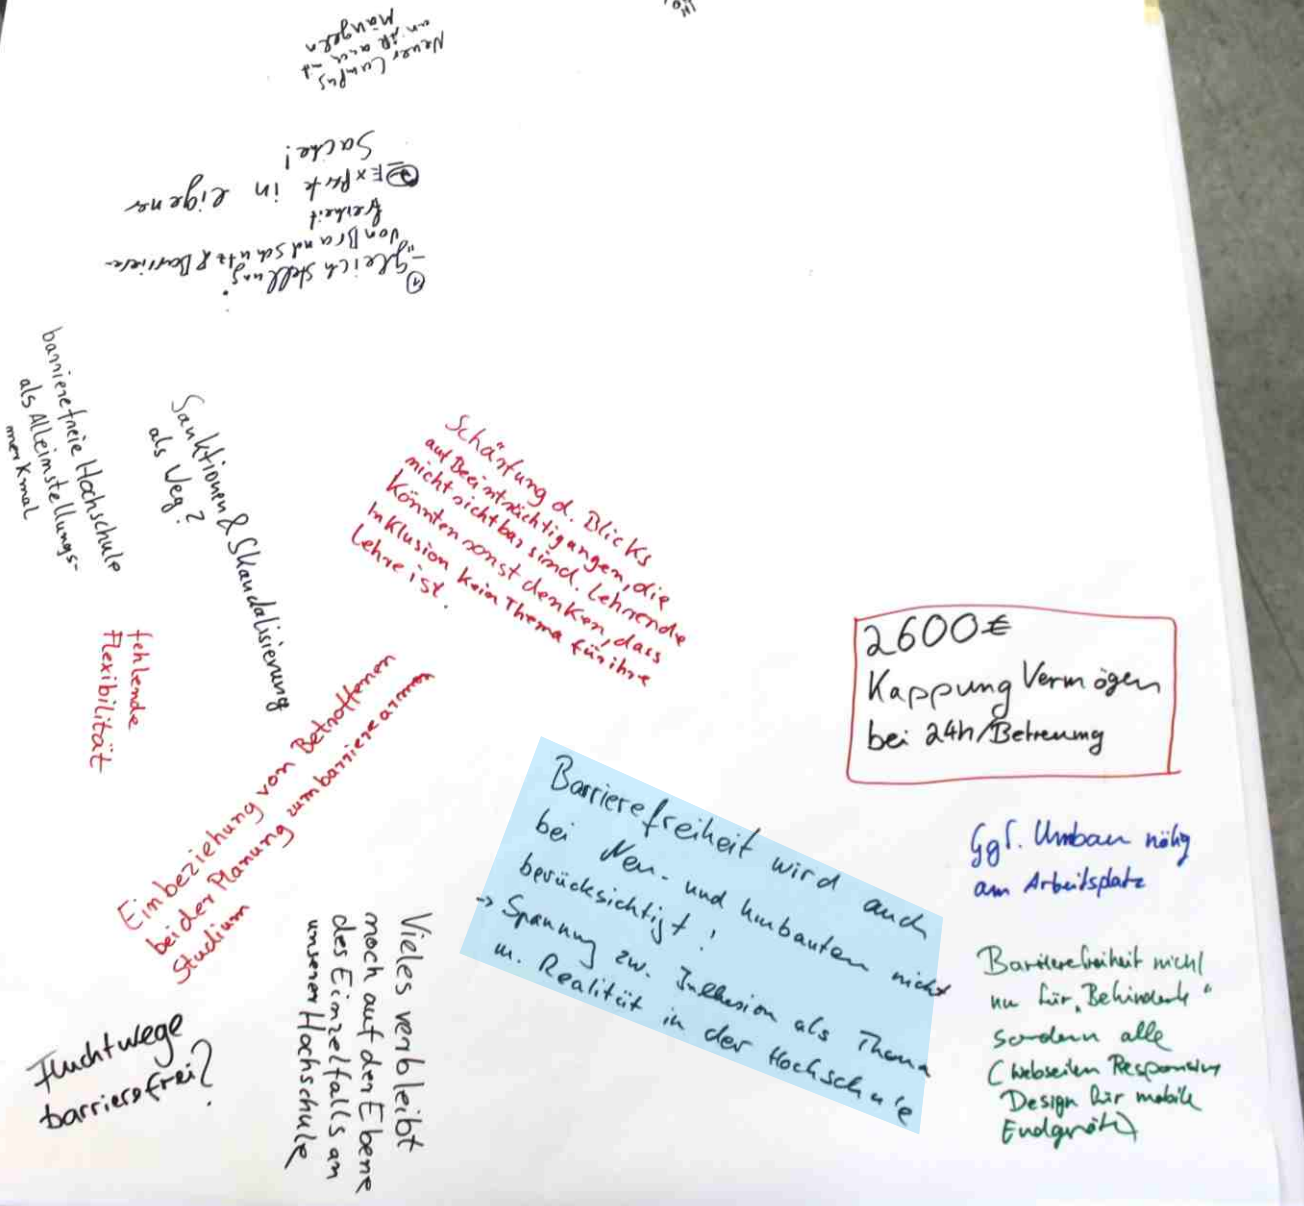 Neuer Campus
Mängeln
① "gleichstellung"
von Brandschutz & Barriere-
freiheit
② Experte in eigener
Sache!
barrierefreie Hochschule
als Alleinstellungs-
merkmal
Sanktionen & Skandalisierung
als Weg?
Schärfung d. Blicks
auf Beeinträchtigungen, die
nicht sichtbar sind. Lehrende
könnten sonst denken, dass
Inklusion kein Thema für ihre
Lehre ist.
fehlende
Flexibilität
Einbeziehung von Betroffenen
bei der Planung zum barrierearmen
Studium
2600€
Kappung Vermögen
bei 24h/Betreuung
Barrierefreiheit wird auch
bei Neu- und Umbauten nicht
berücksichtigt!
→ Spannung zw. Inklusion als Thema
u. Realität in der Hochschule
Ggf. Umbau nötig
am Arbeitsplatz
Barrierefreiheit nicht
nur für „Behinderte"
sondern alle
(Webseiten Responsive
Design für mobile
Endgeräte)
Vieles verbleibt
noch auf der Ebene
des Einzelfalls an
unserer Hochschule
Fluchtwege
barrierefrei?